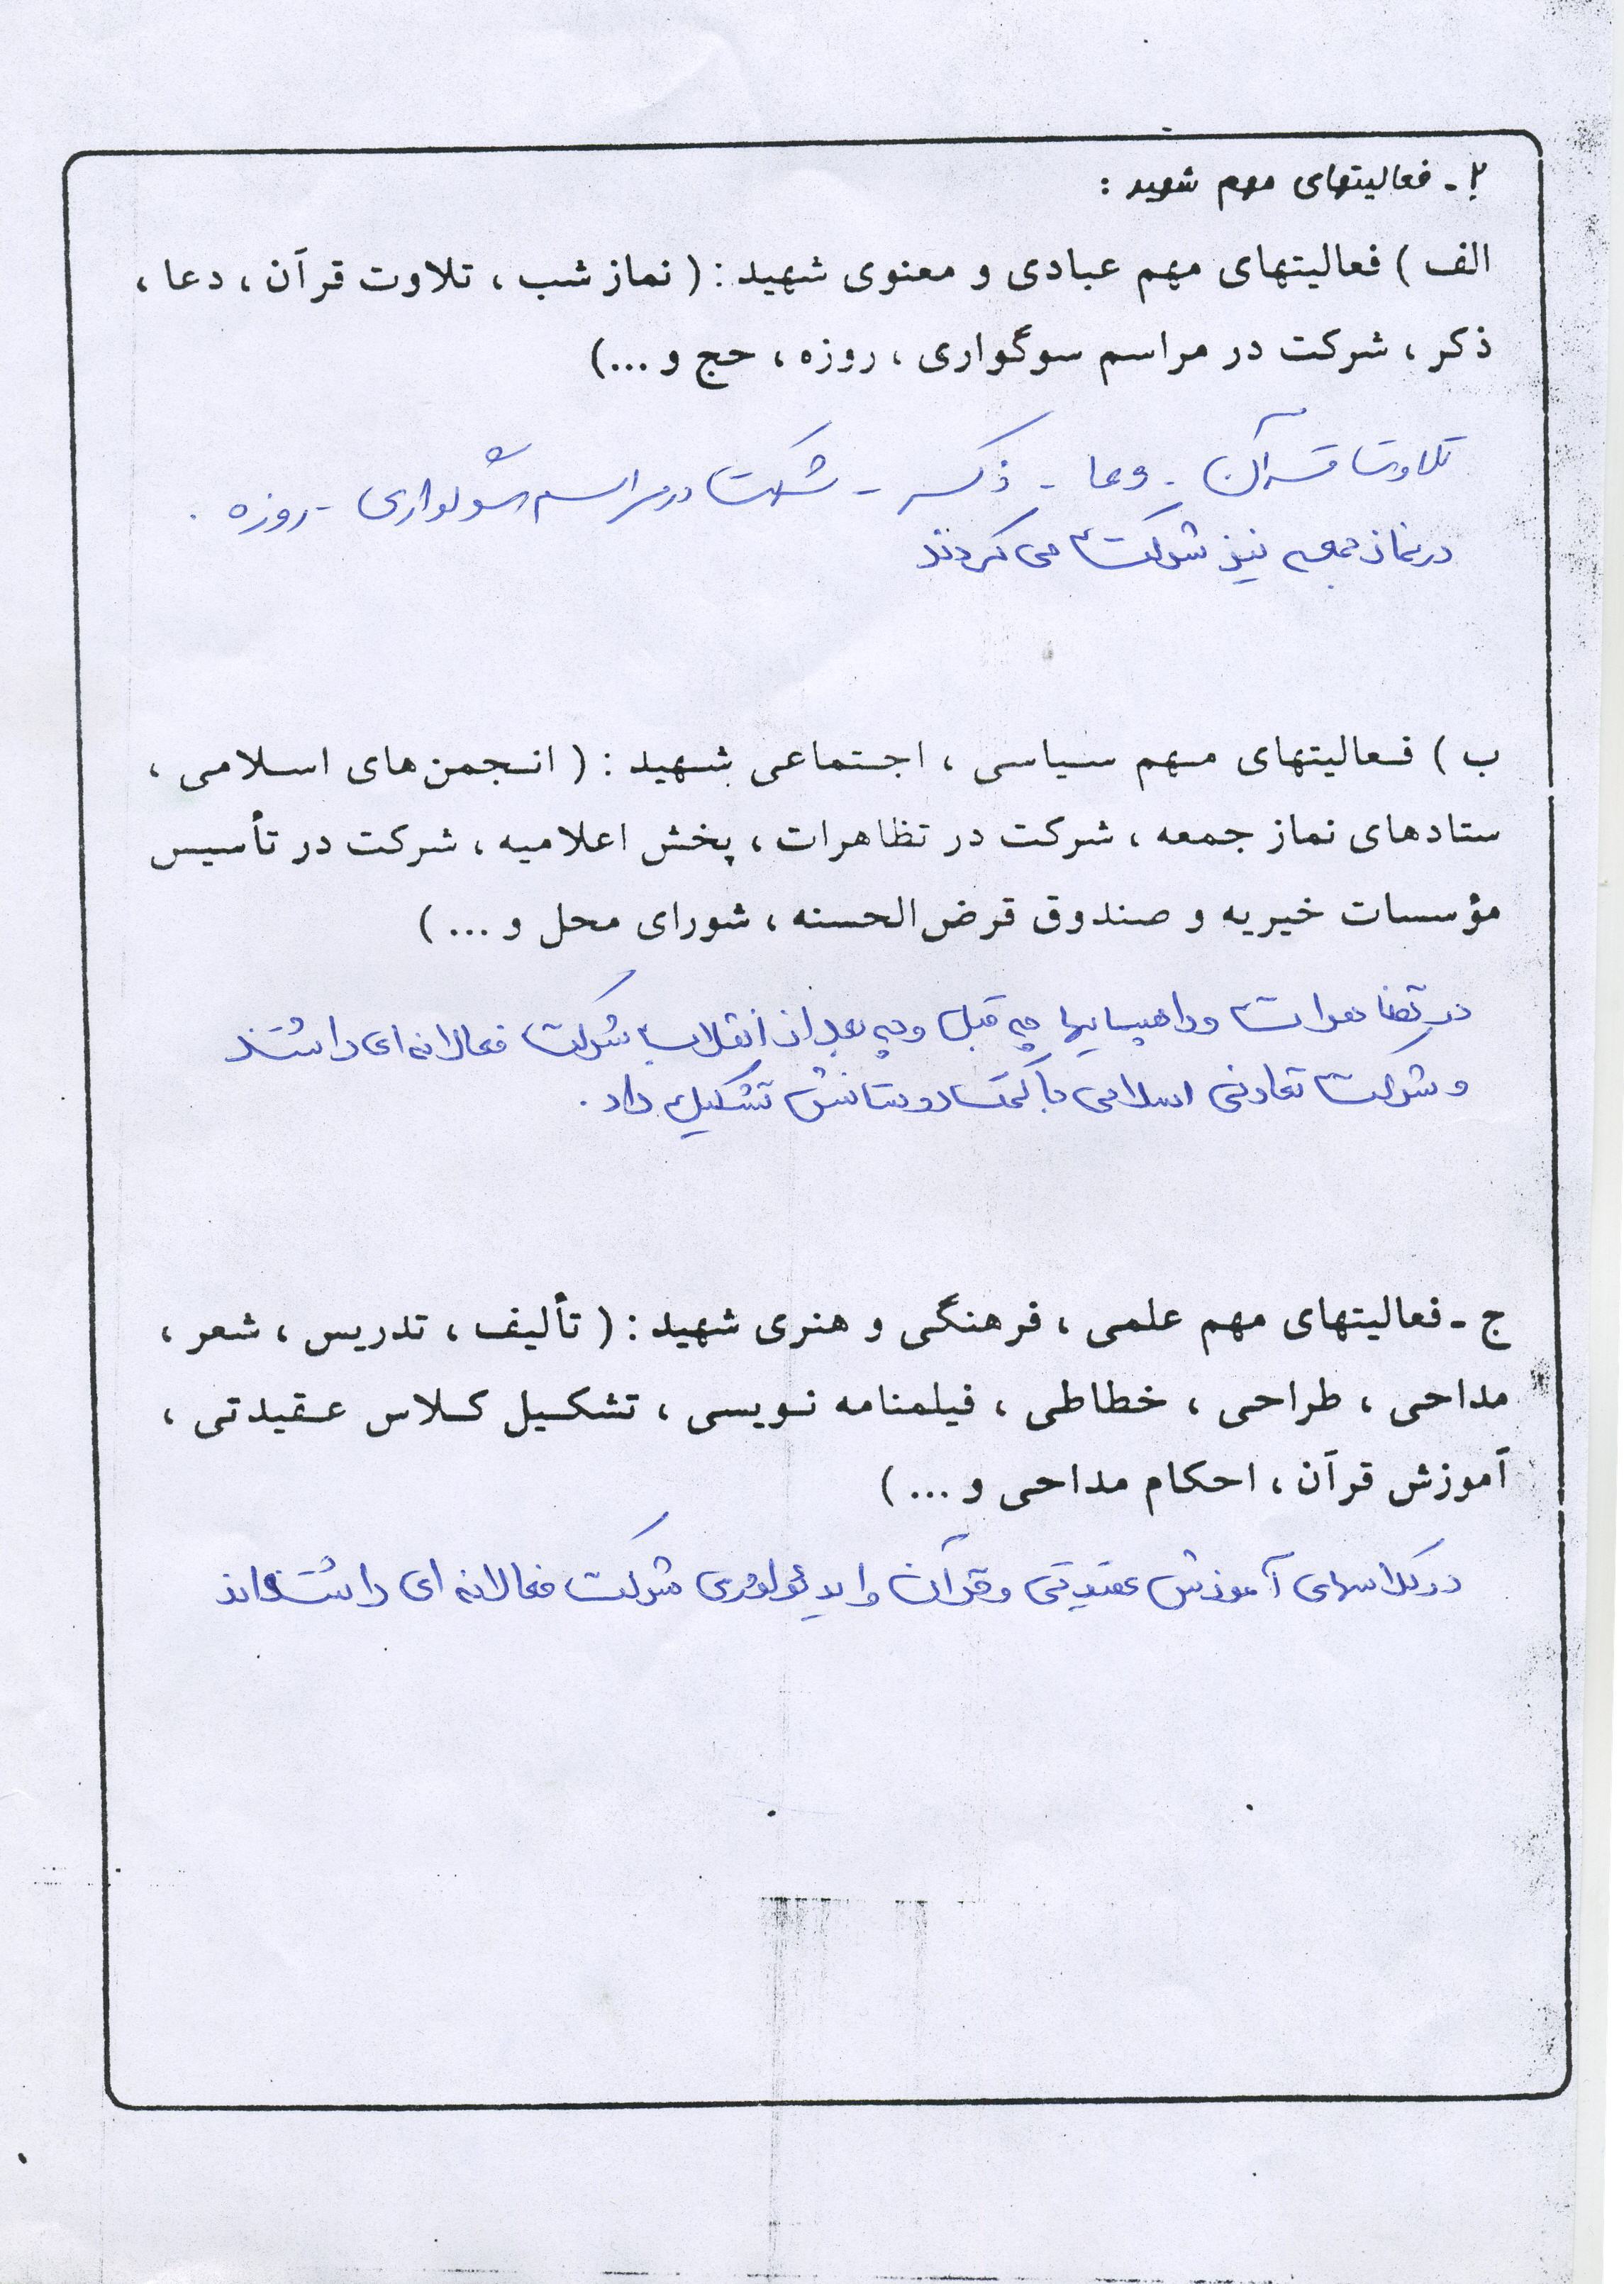 ۲ـ فعالیتهای مهم شهید :
الف ) فعالیتهای مهم عبادی و معنوی شهید : ( نماز شب ، تلاوت قرآن ، دعا ،
ذکر ، شرکت در مراسم سوگواری ، روزه ، حج و ...)
تلاوت قرآن - دعا - ذکر - شرکت در مراسم سوگواری - روزه .
در نماز جمعه نیز شرکت می کردند
ب ) فعالیتهای مهم سیاسی ، اجتماعی شهید : ( انجمن های اسلامی ،
ستادهای نماز جمعه ، شرکت در تظاهرات ، پخش اعلامیه ، شرکت در تأسیس
مؤسسات خیریه و صندوق قرض الحسنه ، شورای محل و ... )
در تضاهرات و راهپیمایها چه قبل و چه بعد از انقلاب شرکت فعالانه ای داشتند
و شرکت تعاونی اسلامی با کمک دوستانش تشکیل داد .
ج ـ فعالیتهای مهم علمی ، فرهنگی و هنری شهید : ( تألیف ، تدریس ، شعر ،
مداحی ، طراحی ، خطاطی ، فیلمنامه نویسی ، تشکیل کلاس عقیدتی ،
آموزش قرآن ، احکام مداحی و ... )
در کلاسهای آموزش عقیدتی و قرآن و ایدئولوژی شرکت فعالانه ای داشته اند